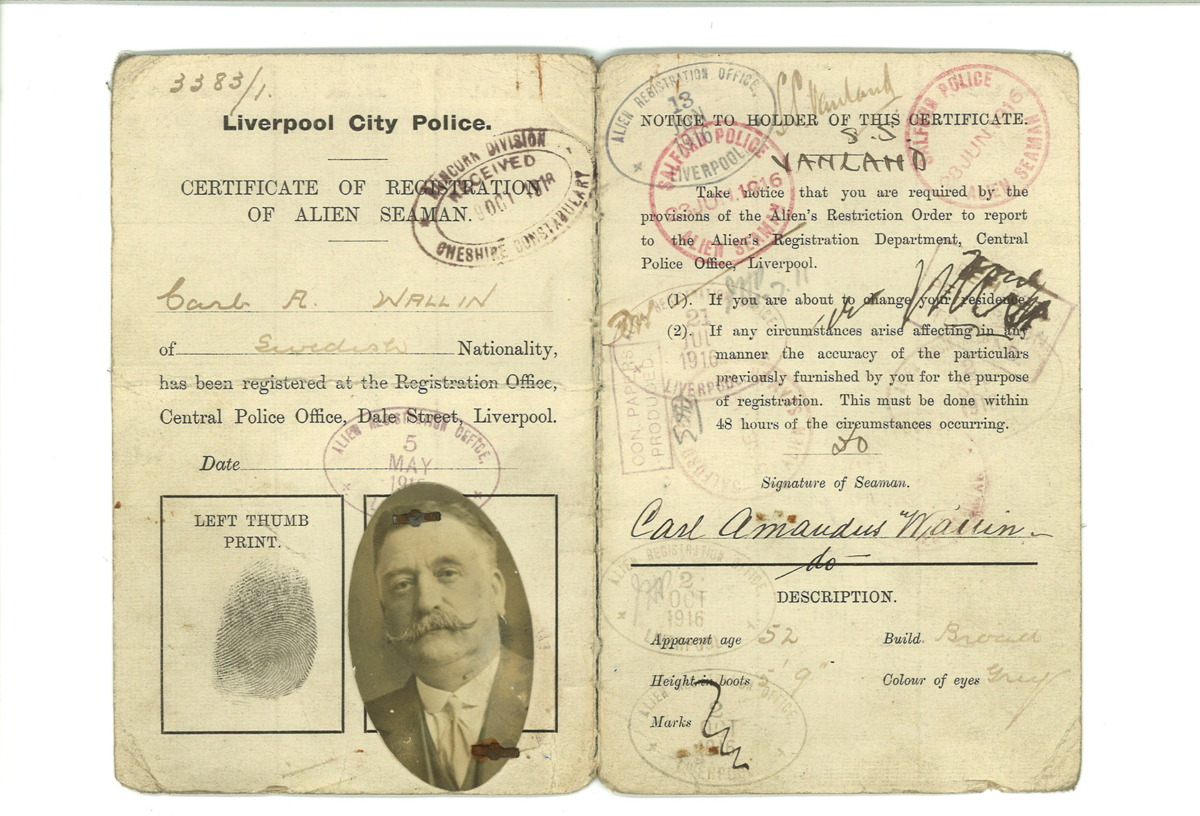 3383/1.
Liverpool City Police.
CERTIFICATE OF REGISTRATION
OF ALIEN SEAMAN.
RUNCORN DIVISION
RECEIVED
OCT
CHESHIRE CONSTABULARY
Carl A. WALLIN
of Swedish Nationality,
has been registered at the Registration Office,
Central Police Office, Dale Street, Liverpool.
Date
ALIEN REGISTRATION OFFICE,
5
MAY
1916
LEFT THUMB
PRINT.
ALIEN REGISTRATION OFFICE,
13
1916
LIVERPOOL
S.S. Vanland
SALFORD POLICE
08 JUN. 1916
ALIEN SEAMAN
NOTICE TO HOLDER OF THIS CERTIFICATE.
S.S.
VANLAND
SALFORD POLICE
JUN. 1916
ALIEN SEAMAN
Take notice that you are required by the
provisions of the Alien's Restriction Order to report
to the Alien's Registration Department, Central
Police Office, Liverpool.
(1). If you are about to change your residence.
(2). If any circumstances arise affecting in any
manner the accuracy of the particulars
previously furnished by you for the purpose
of registration. This must be done within
48 hours of the circumstances occurring.
21
JUL
1916
LIVERPOOL
CON. PAPERS
PRODUCED.
SALFORD
do
Signature of Seaman.
Carl Amandus Wallin
do
ALIEN REGISTRATION OFFICE,
2
OCT
1916
LIVERPOOL
DESCRIPTION.
Apparent age 52 Build Broad
Height in boots 5' 9" Colour of eyes Grey
Marks
REGISTRATION OFFICE,
2
OCT
1916
LIVERPOOL